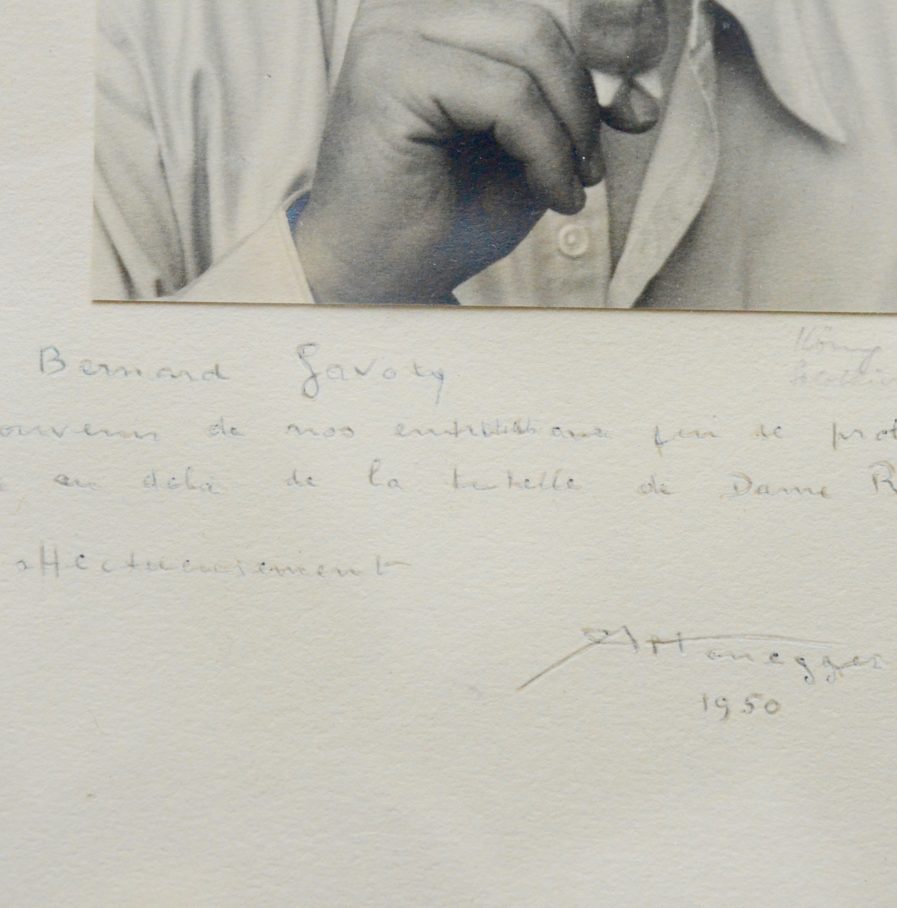 Bernard Gavoty
ouvenir de nos entretiens qui se prol
en delà de la tutelle de Dame R
affectueusement
AHonegger
1950